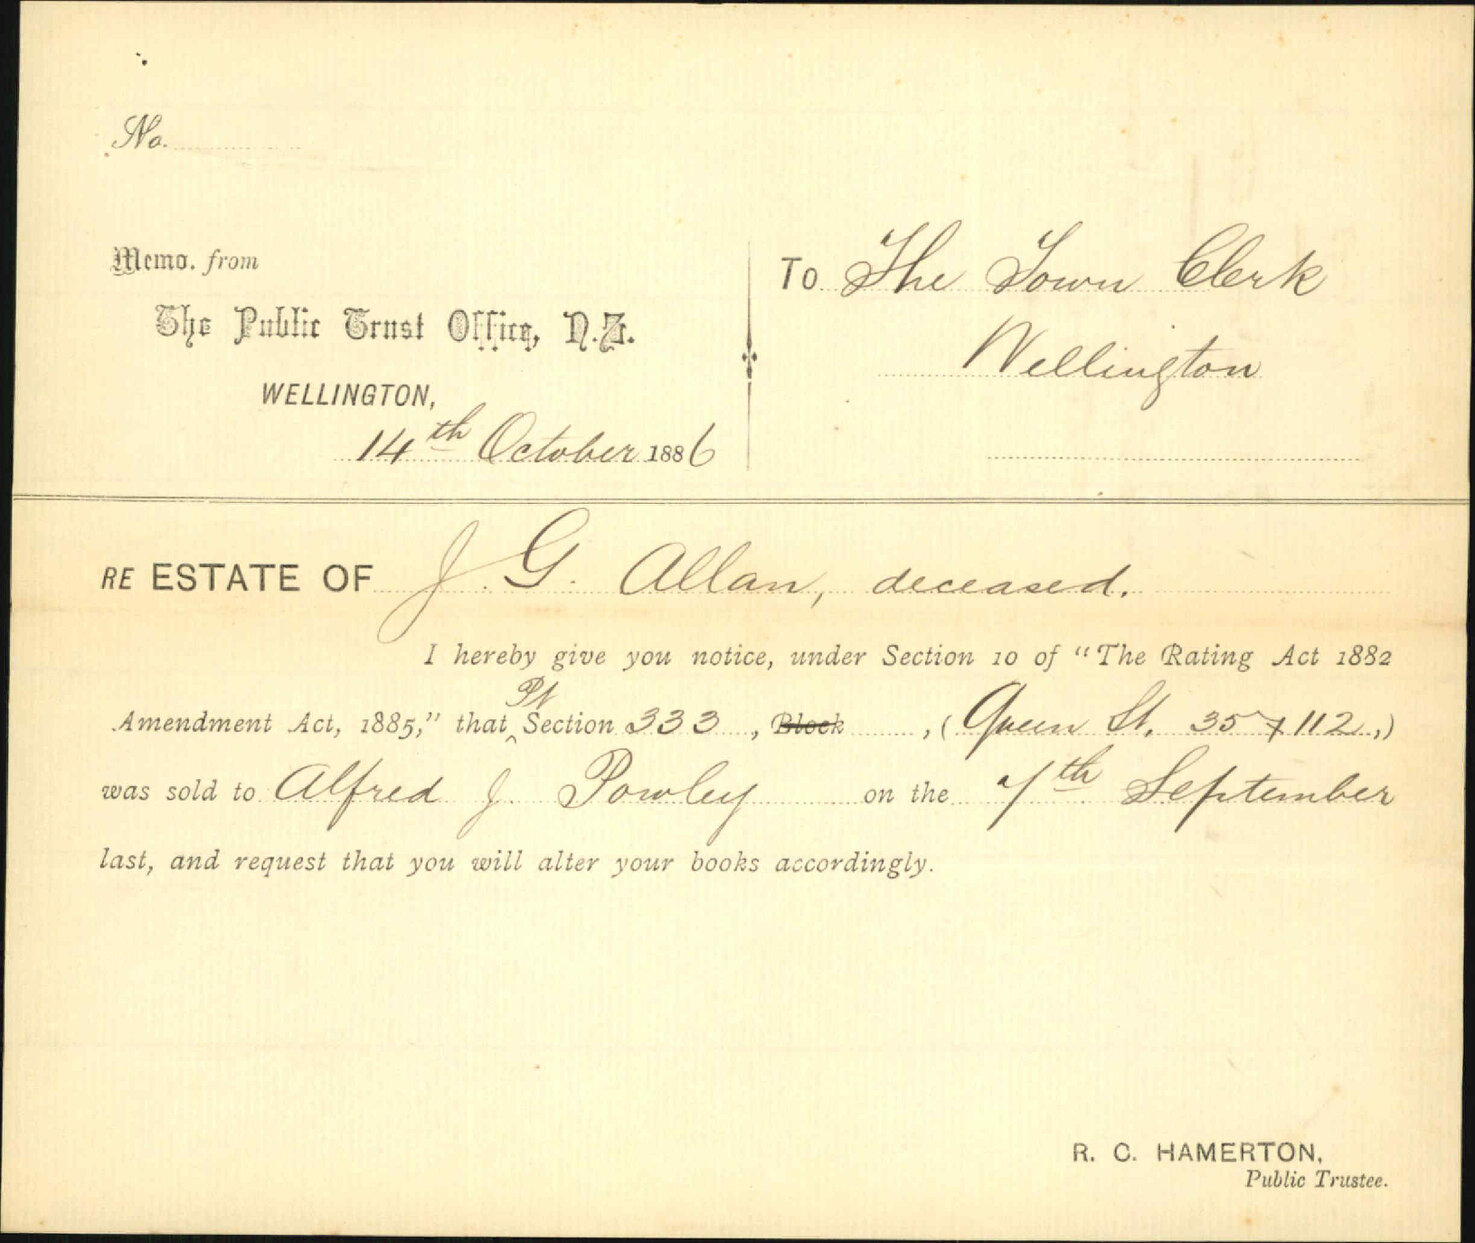 No.
Memo. from
The Public Trust Office, N.Z.
WELLINGTON,
14th October 1886
To The Town Clerk
Wellington
RE ESTATE OF J. G. Allan, deceased.
I hereby give you notice, under Section 10 of "The Rating Act 1882
Pt
Amendment Act, 1885," that ‸ Section 333, Block , (Queen St. 35 x 112,)
was sold to Alfred J. Powley on the 7th September
last, and request that you will alter your books accordingly.
R. C. HAMERTON,
Public Trustee.